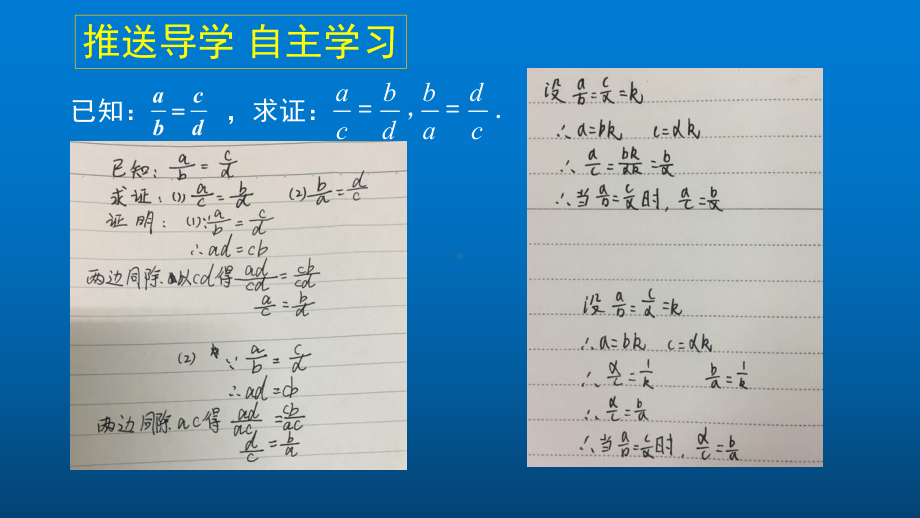 推送导学 自主学习
已知：a/b = c/d ，求证：a/c = b/d , b/a = d/c .
已知: a/b = c/d
求证: (1) a/c = b/d (2) b/a = d/c
证明: (1) ∵ a/b = c/d
∴ ad = cb
两边同除以cd得 ad/cd = cb/cd
a/c = b/d
(2) ∵ a/b = c/d
∴ ad = cb
两边同除ac得 ad/ac = cb/ac
d/c = b/a
设 a/b = c/d = k
∴ a = bk c = dk
∴ a/c = bk/dk = b/d
∴ 当 a/b = c/d 时, a/c = b/d
设 a/b = c/d = k
∴ a = bk c = dk
∴ d/c = 1/k b/a = 1/k
∴ d/c = b/a
∴ 当 a/b = c/d 时, d/c = b/a